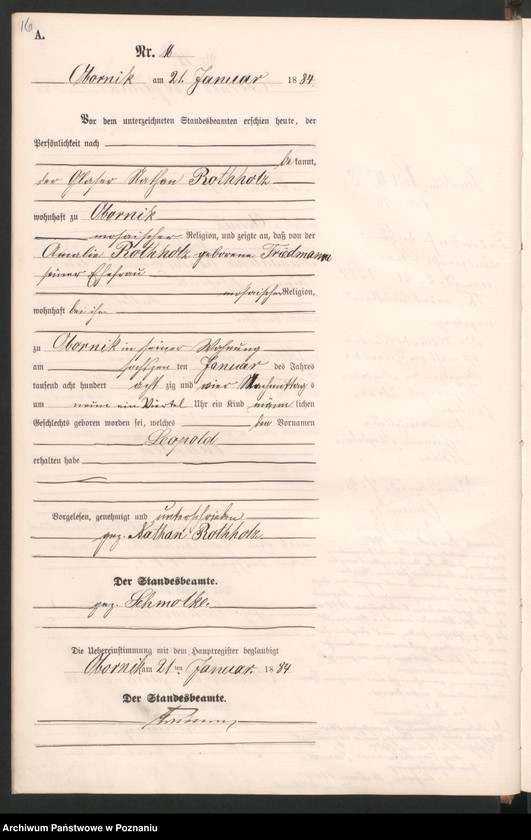 16
A.
Nr. 16
Obornik am 21. Januar 1884
Vor dem unterzeichneten Standesbeamten erschien heute, der
Persönlichkeit nach
bekannt,
der Glaser Nathan Rothholz
wohnhaft zu Obornik
mosaischer Religion, und zeigte an, daß von der
Amalie Rothholz geborene Friedmann
seiner Ehefrau
mosaischer Religion,
wohnhaft bei ihm
zu Obornik in seiner Wohnung
am ten Januar des Jahres
tausend acht hundert achtzig und vier Nachmittags
um neun ein Viertel Uhr ein Kind männlichen
Geschlechts geboren worden sei, welches den Vornamen
Leopold
erhalten habe
Vorgelesen, genehmigt und unterschrieben
gez. Nathan Rothholz
Der Standesbeamte.
gez. Schmolke.
Die Uebereinstimmung mit dem Hauptregister beglaubigt
Obornik am 21ten Januar 1884
Der Standesbeamte.
Archiwum Państwowe w Poznaniu